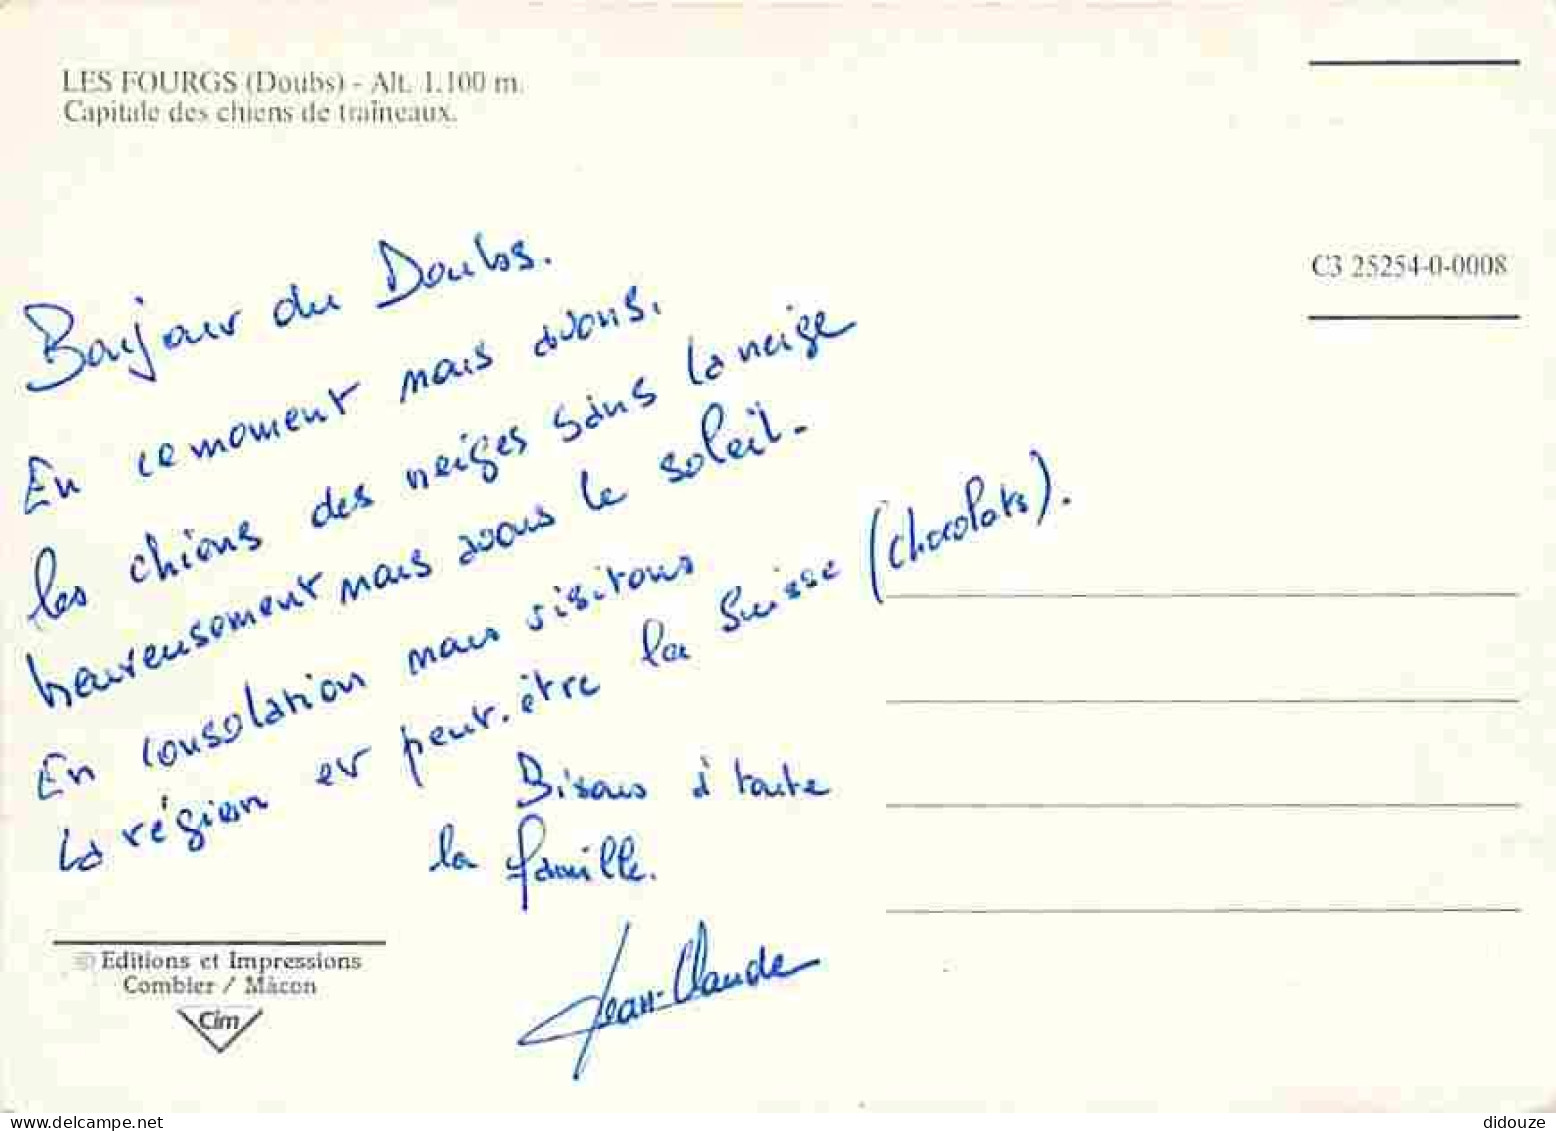 LES FOURGS (Doubs) - Alt. 1.100 m.
Capitale des chiens de traîneaux.
C3 25254-0-0008
Bonjour du Doubs.
En ce moment nous avons.
les chiens des neiges sans la neige
heureusement nous avons le soleil.
En consolation nous visitons
la région et peut-être la Suisse (chocolats).
Bisous à toute
la famille.
Jean-Claude
Editions et Impressions
Combier / Mâcon
Cim
didouze